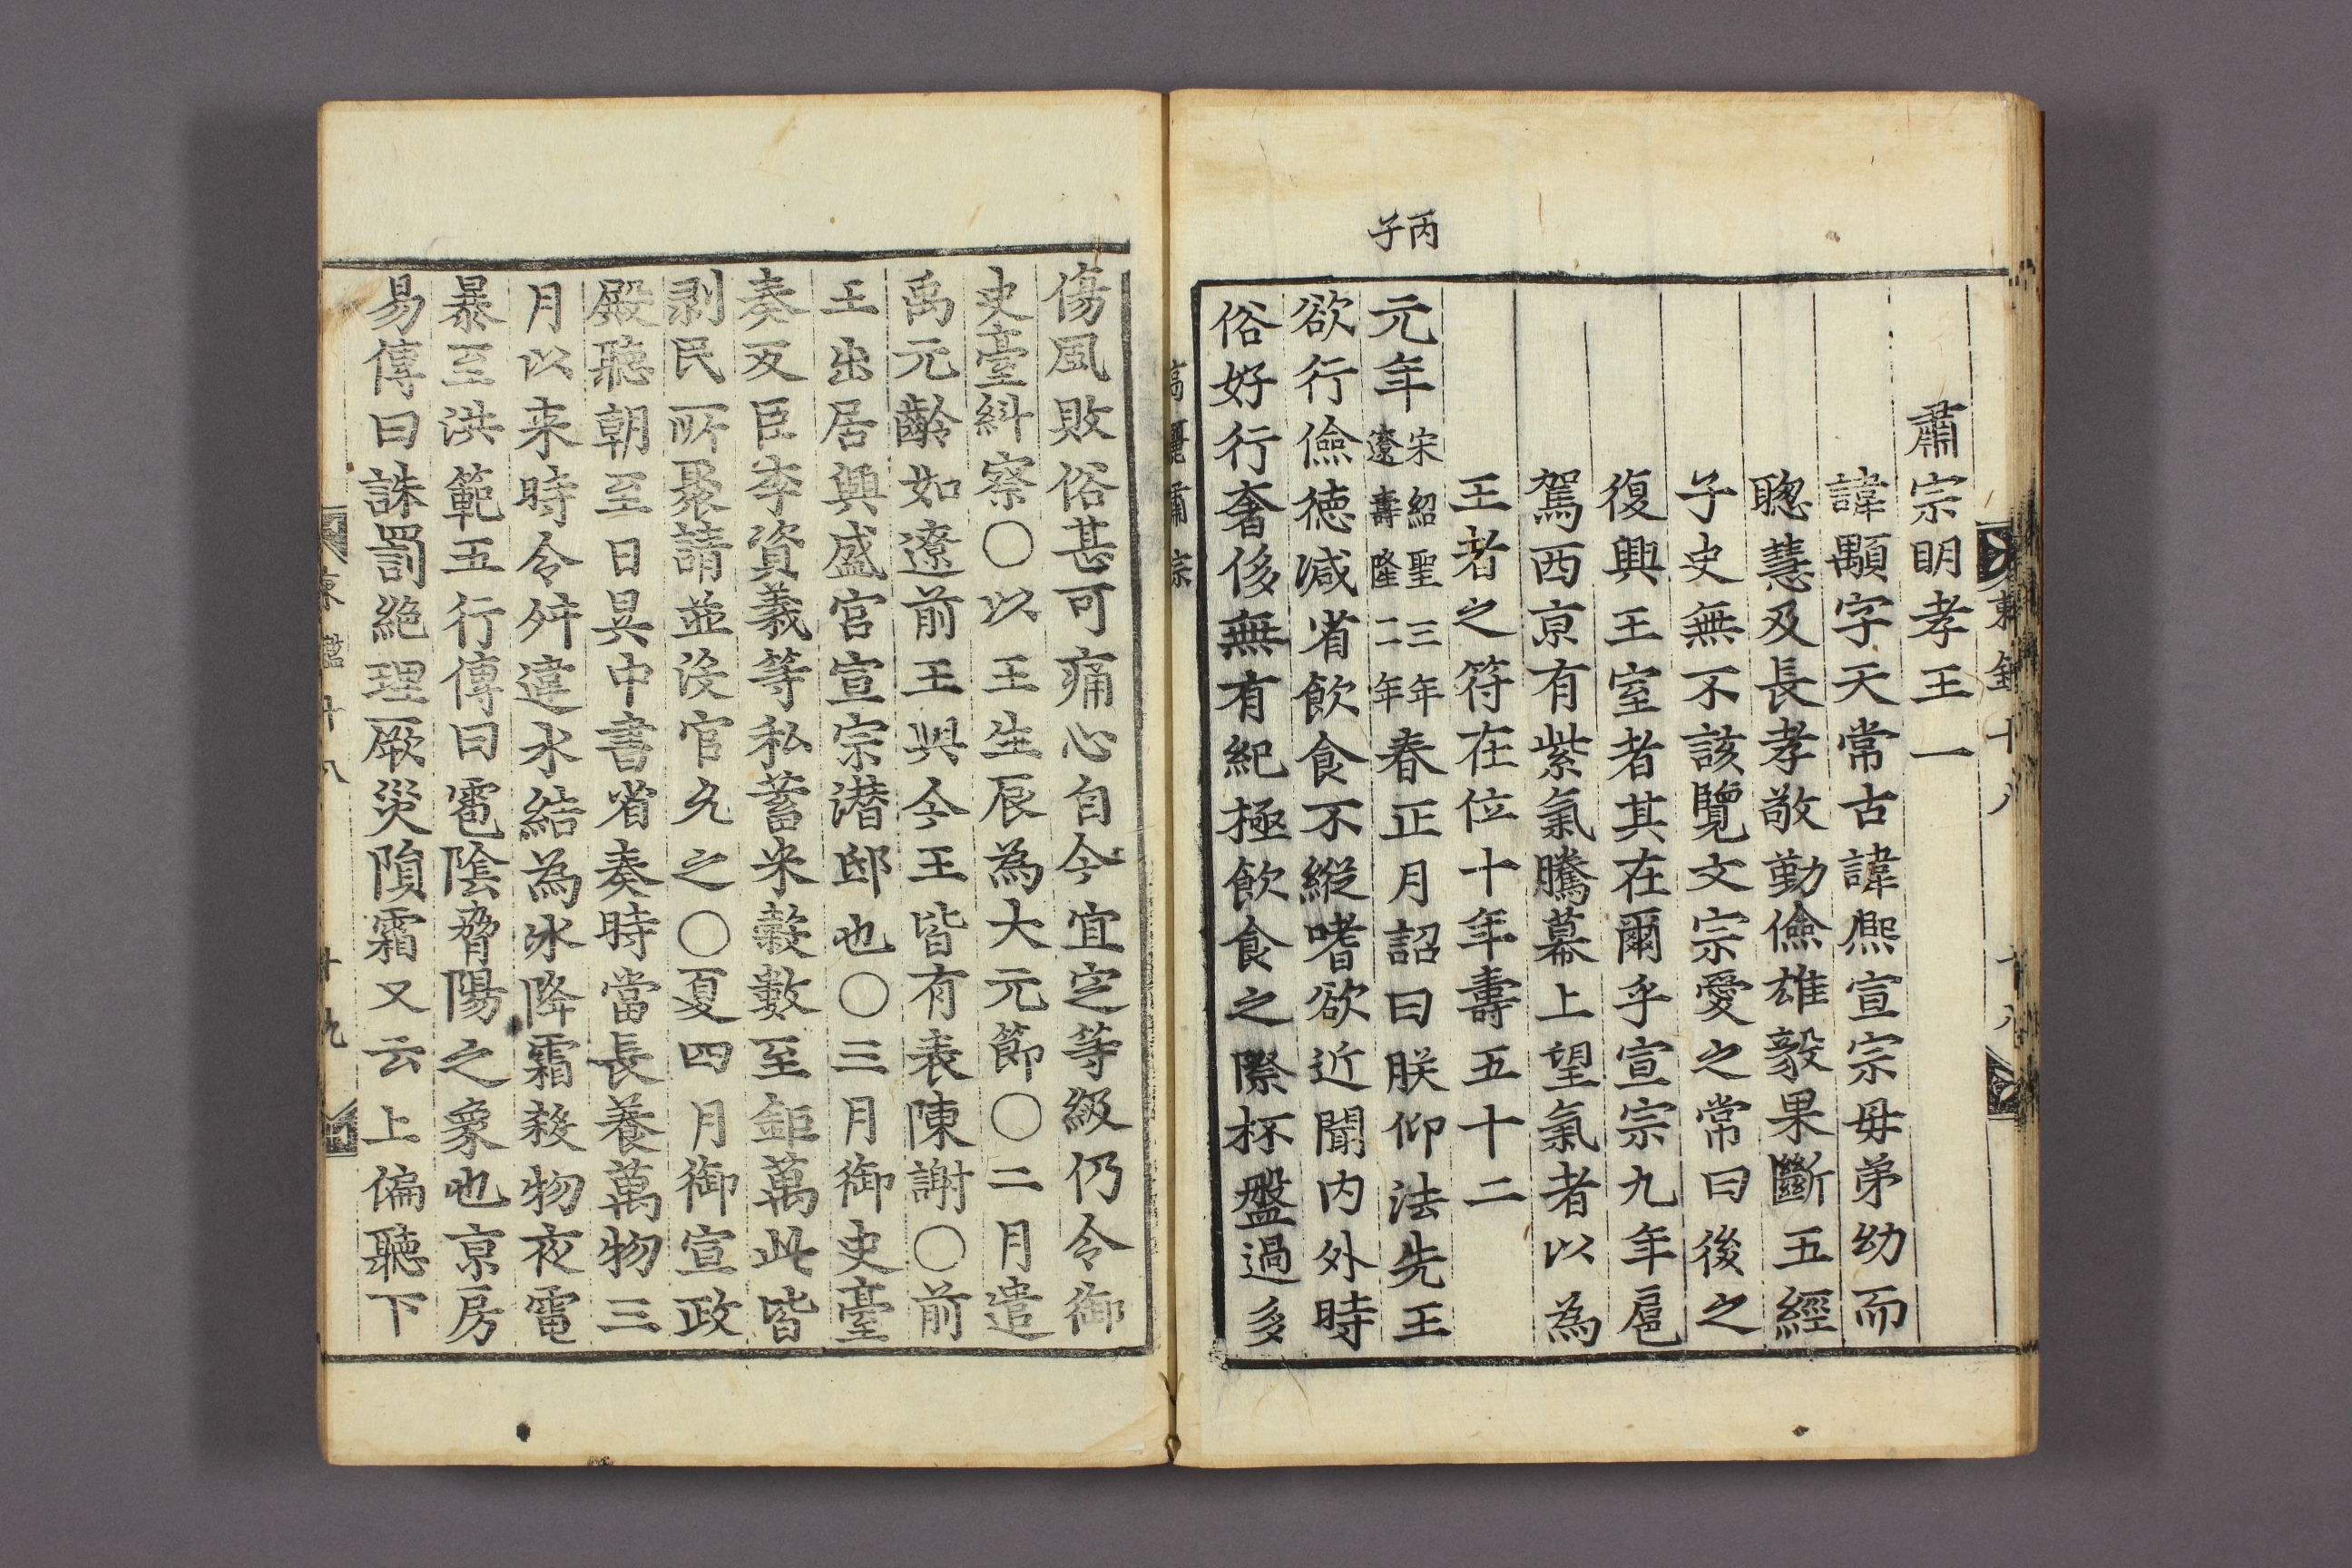 丙子
肅宗明孝王一
諱顒字天常古諱熈宣宗母弟幼而
聦慧及長孝敬勤儉雄毅果斷五經
子史無不該覽文宗愛之常曰後之
復興王室者其在爾乎宣宗九年扈
駕西亰有紫氣騰幕上望氣者以為
王者之符在位十年壽五十二
元年宋紹聖三年遼壽隆二年春正月詔曰朕仰法先王
欲行儉徳減省飲食不縱嗜欲近聞内外時
俗好行奢侈無有紀極飲食之際杯盤過多
高麗肅宗
傷風敗俗甚可痛心自今宜定等級仍令御
史臺糾察○以王生辰為大元節○二月遣
禹元齡如遼前王與今王皆有表陳謝○前
王出居興盛宫宣宗潜邸也○三月御史臺
奏叐臣李資義等私蓄米糓數至鉅萬此皆
剥民所聚請並没官允之○夏四月御宣政
殿聽朝至日昃中書省奏時當長養萬物三
月以来時令舛違水結為氷降霜殺物夜電
暴至洪範五行傳曰雹隂脅陽之象也亰房
易傳曰誅罰絶理厥災隕霜又云上偏聽下
十八
十九